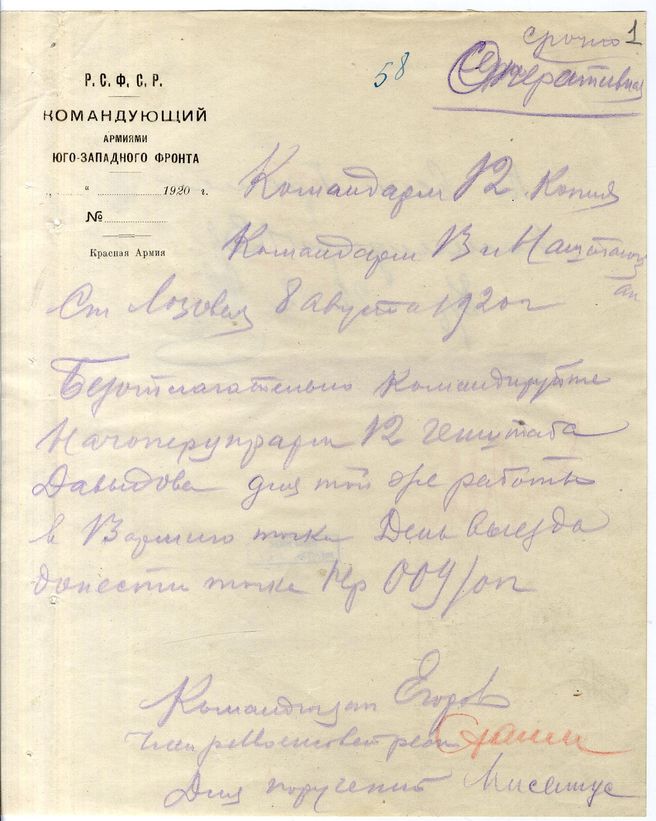 срочно 1
Оперативная
58
Р. С. Ф. С. Р.
КОМАНДУЮЩИЙ
АРМИЯМИ
ЮГО-ЗАПАДНОГО ФРОНТА
„ “ 1920 г.
№
Красная Армия
Командарм 12 Копия
Командарм 13 и
Ст Лозовая 8 августа 1920 г
Безотлагательно командируйте
Начоперупрарм 12 генштаба
Давыдова для той же работы
в 13 армию точка День выезда
донести точка Нр 009/оп
Командюзап Егоров
Член реввоенсовета Сталин
Для поручений